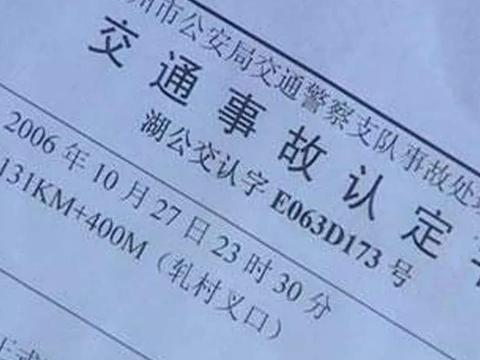 州市公安局交通警察支队事故处理
交通事故认定书
湖公交认字E063D173号
2006年10月27日23时30分
131KM+400M（轧村叉口）